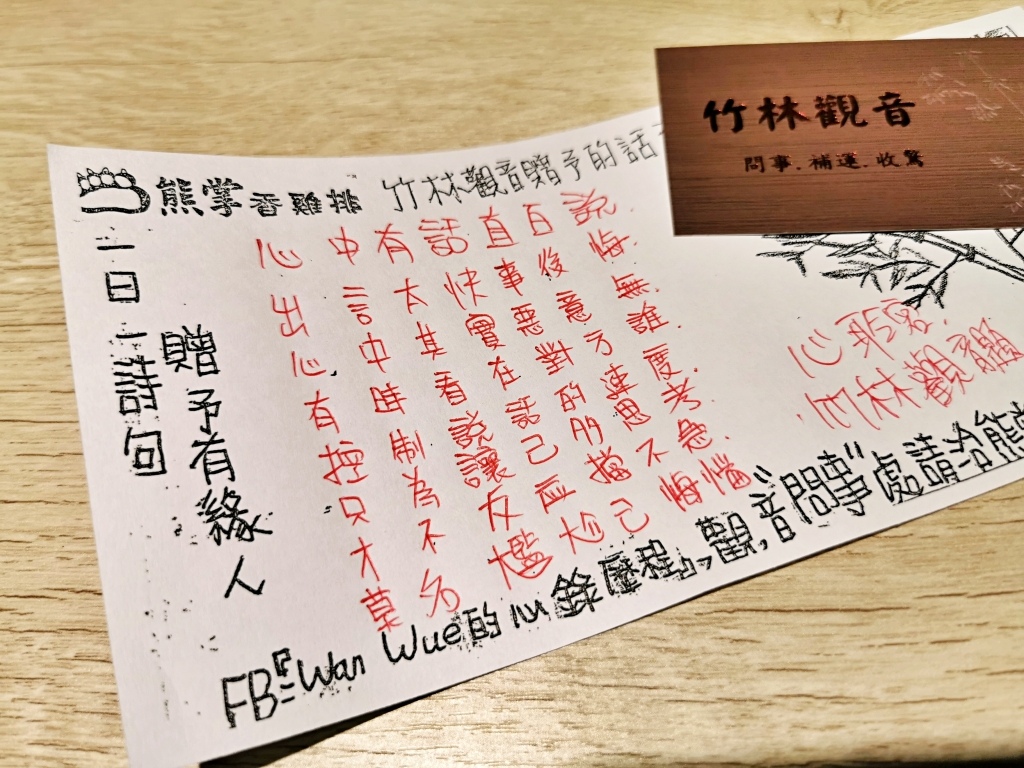 竹林觀音
問事.補運.收驚
熊掌香雞排
竹林觀音贈予的話
一日一詩句
贈予有緣人
心中有話直百說.
出言太快事後悔.
心中其實惡意無.
有時看在對方誰.
控制說話的速度
只為讓己多思考.
才不反應擋不急.
莫名尷尬己悔惱.
心耶宮.
竹林觀音題
FB『Wan Wue的心錄歷程』,觀音"問事"處請洽熊掌